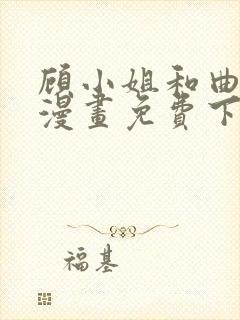 顾小姐和曲
漫畫免費下
福基